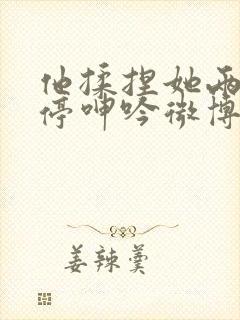 他揉捏她两
停呻吟微博
姜辣羹